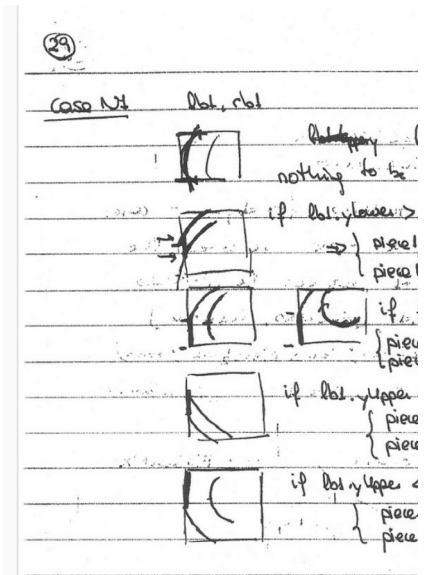 29
Case N1 lbt, rbt
nothing to be
if lbt.yLower >
⇒ { piece1
piece1
if
{ piece
piece
if lbt.yUpper
{ piece
piece
if lbt.yUpper <
{ piece
piece